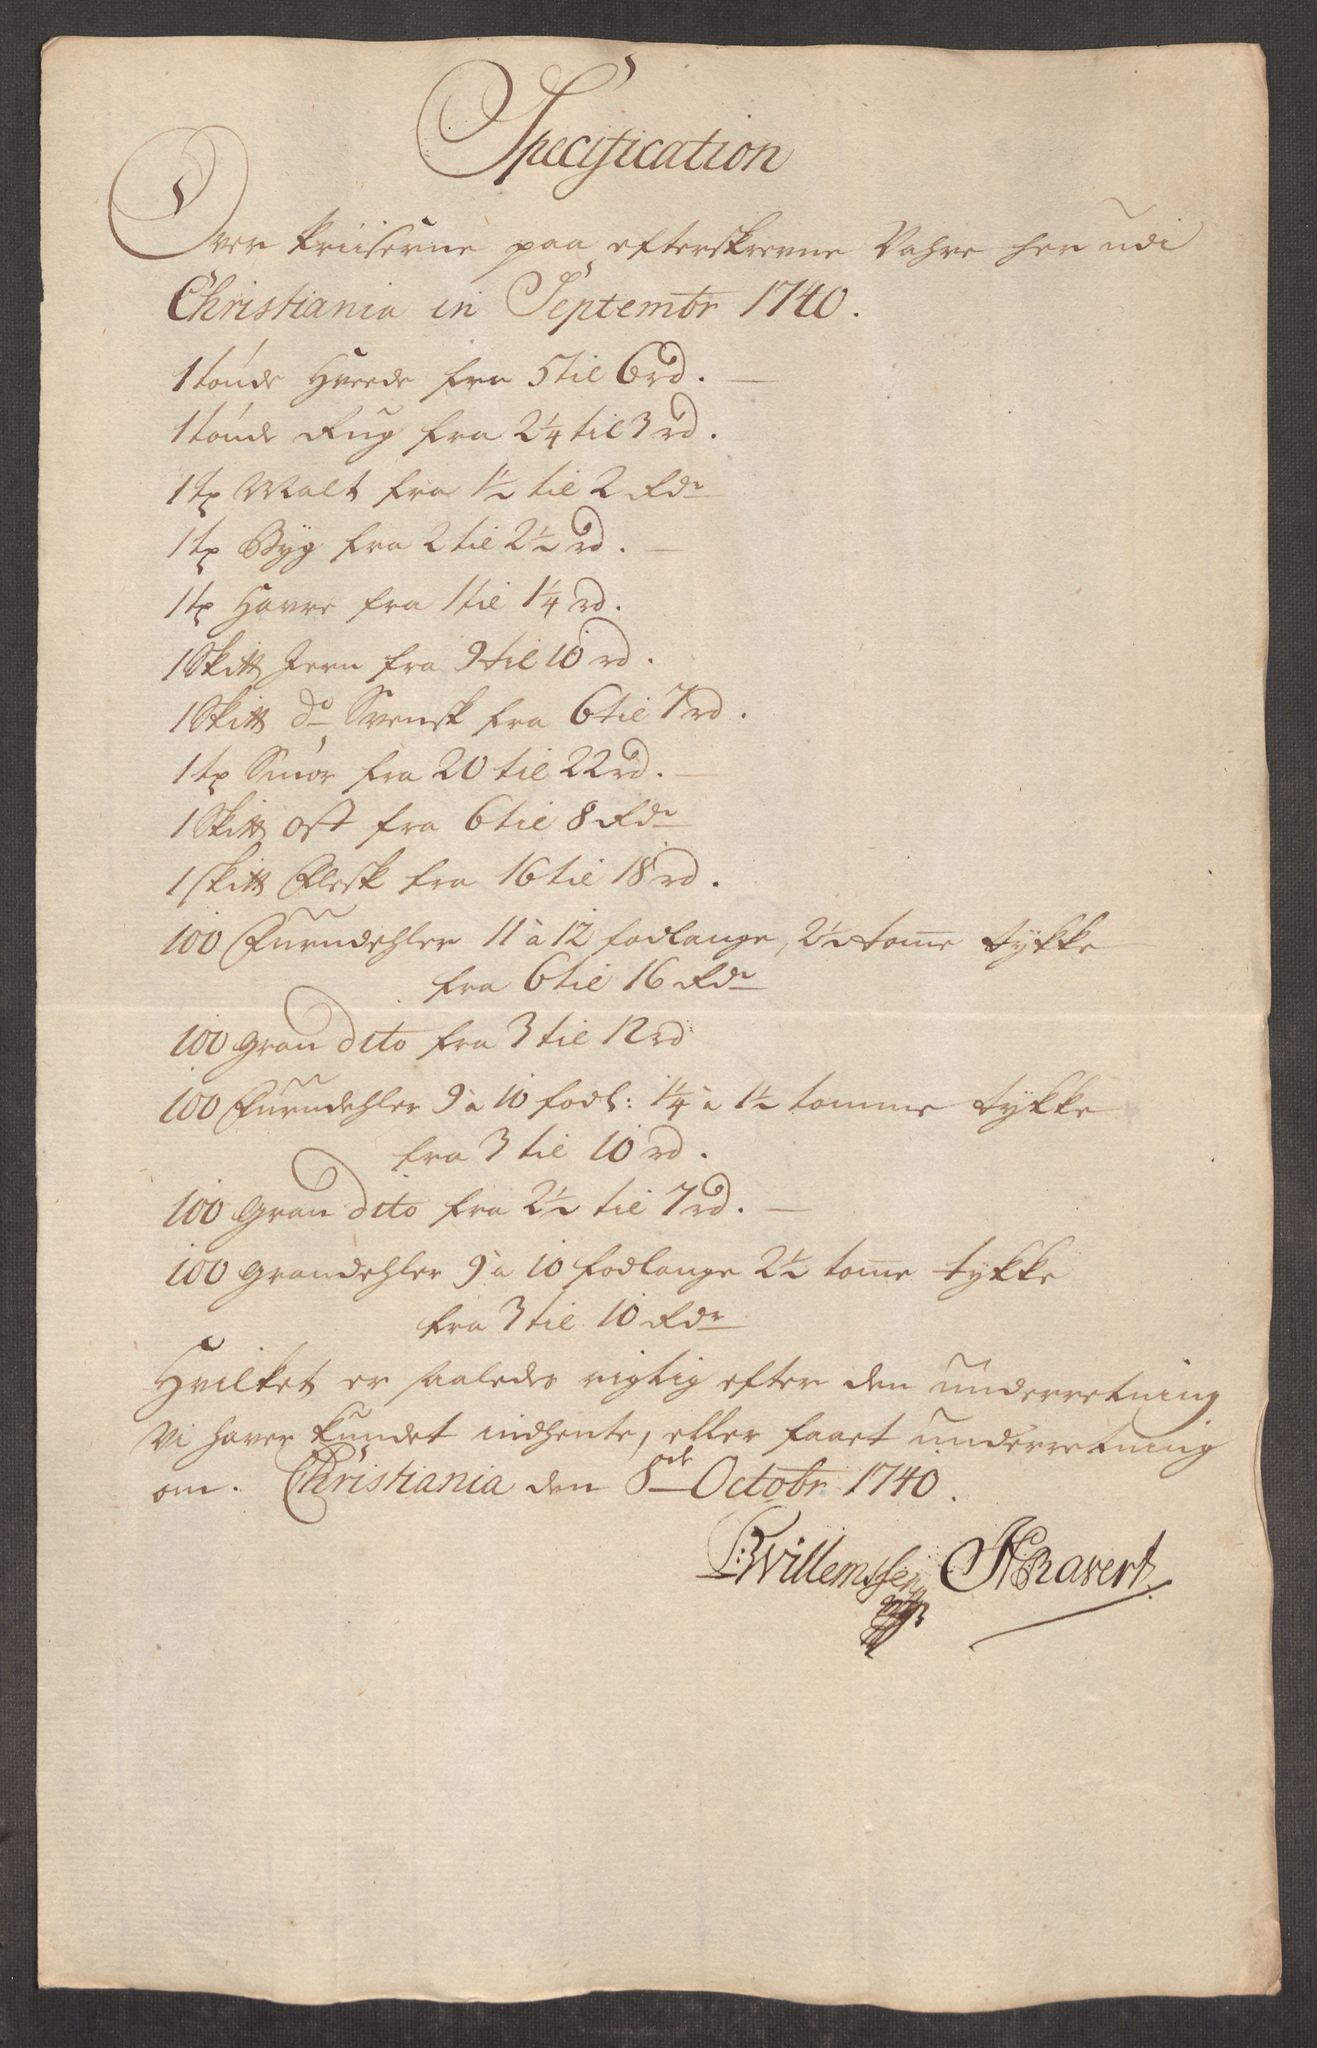 Specification
Over Priiserne paa efterskrevne Vahre her udi
Christiania in Septembr 1740.
1 tønde Hvede fra 5 til 6 rd.
1 tønde Rug fra 2¼ til 3 rd.
1 tø Malt fra 1½ til 2 Rdr
1 tø Byg fra 2 til 2½ rd.
1 tø Havre fra 1 til 1¼ rd.
1 Sk℔ Jern fra 9 til 10 rd.
1 Sk℔ do Svensk fra 6 til 7 rd.
1 tø Smør fra 20 til 22 rd.
1 Sk℔ ost fra 6 til 8 Rdr
1 sk℔ Flesk fra 16 til 18 rd.
100 Furudehler 11 à 12 fodlange, 2½ tome tykke
fra 6 til 16 Rdr
100 gran dito fra 3 til 12 rd
100 Furudehler 9 à 10 fodl: 1¼ à 1½ tomme tykke
fra 3 til 10 rd.
100 gran dito fra 2½ til 7 rd.
100 grandehler 9 à 10 fodlange 2½ tome tykke
fra 3 til 10 Rdr
Hvilket er saaledes rigtig efter den underretning
vi haver kundet indhente, eller faaet underretning
om. Christiania den 8de Octobr 1740.
B: Willemssen Ravert